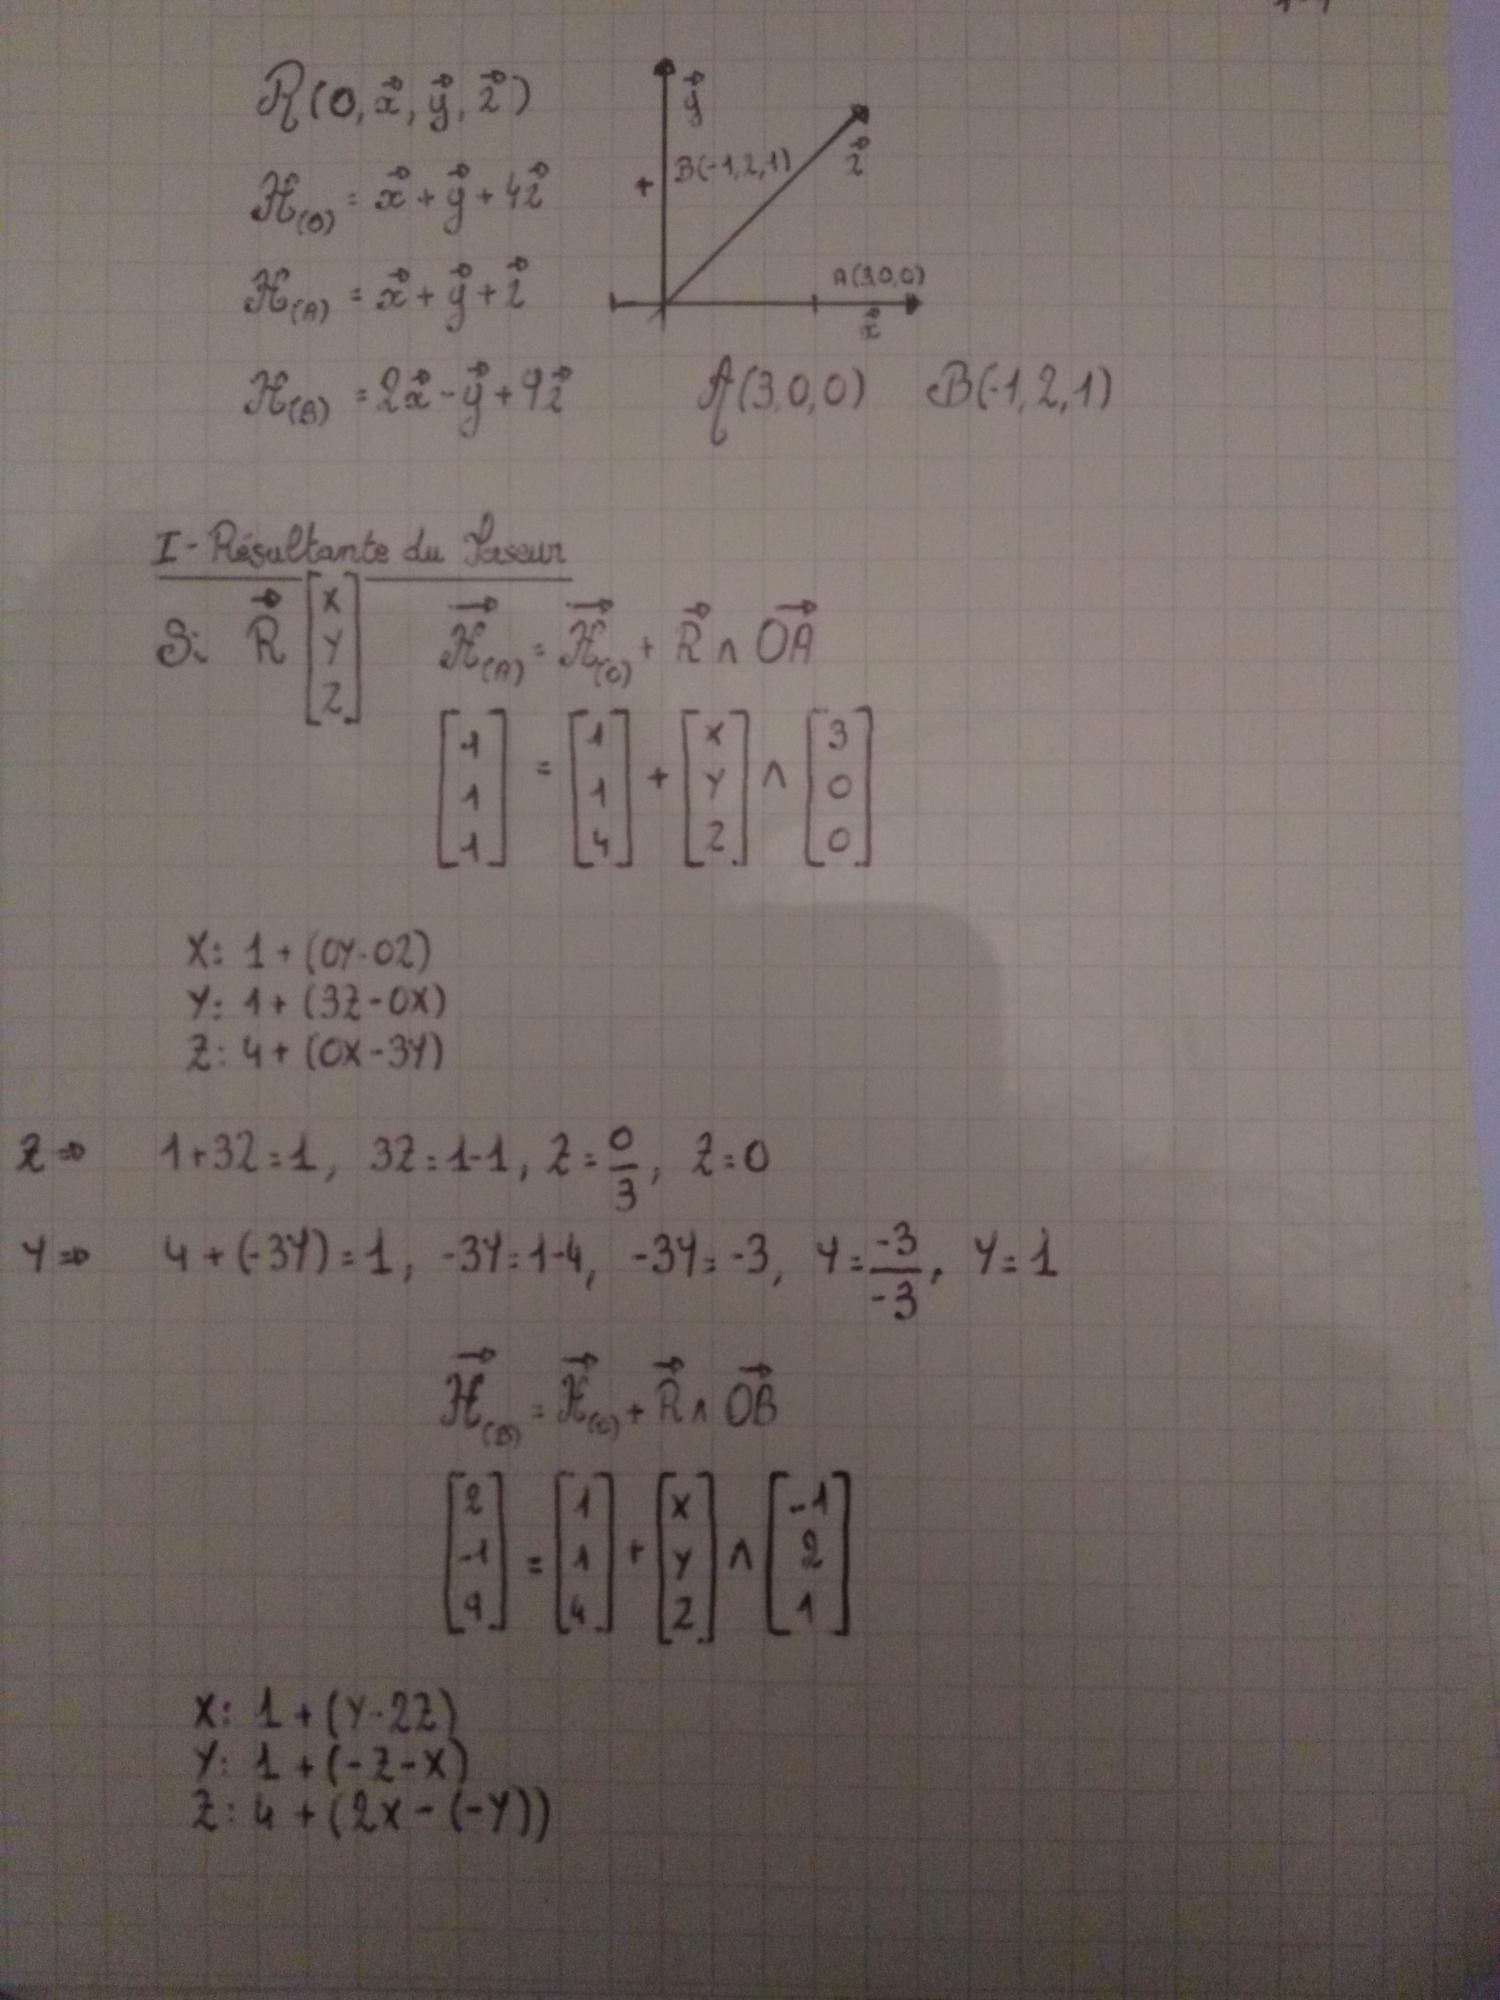 R(O, x⃗, y⃗, z⃗)
H(O) = x⃗ + y⃗ + 4z⃗
H(A) = x⃗ + y⃗ + z⃗
H(B) = 2x⃗ - y⃗ + 9z⃗
y⃗
B(-1,2,1)
z⃗
+
A(3,0,0)
x⃗
A(3,0,0) B(-1,2,1)
I - Résultante du
Si R⃗ [X Y Z] H⃗(A) = H⃗(O) + R⃗ ∧ OA⃗
[1 1 1] = [1 1 4] + [X Y Z] ∧ [3 0 0]
X: 1 + (0Y-0Z)
Y: 1 + (3Z-0X)
Z: 4 + (0X-3Y)
Z ⇒ 1+3Z=1, 3Z=1-1, Z=0/3, Z=0
Y ⇒ 4+(-3Y)=1, -3Y=1-4, -3Y=-3, Y=-3/-3, Y=1
H⃗(B) = H⃗(O) + R⃗ ∧ OB⃗
[2 -1 9] = [1 1 4] + [X Y Z] ∧ [-1 2 1]
X: 1 + (Y-2Z)
Y: 1 + (-Z-X)
Z: 4 + (2X-(-Y))